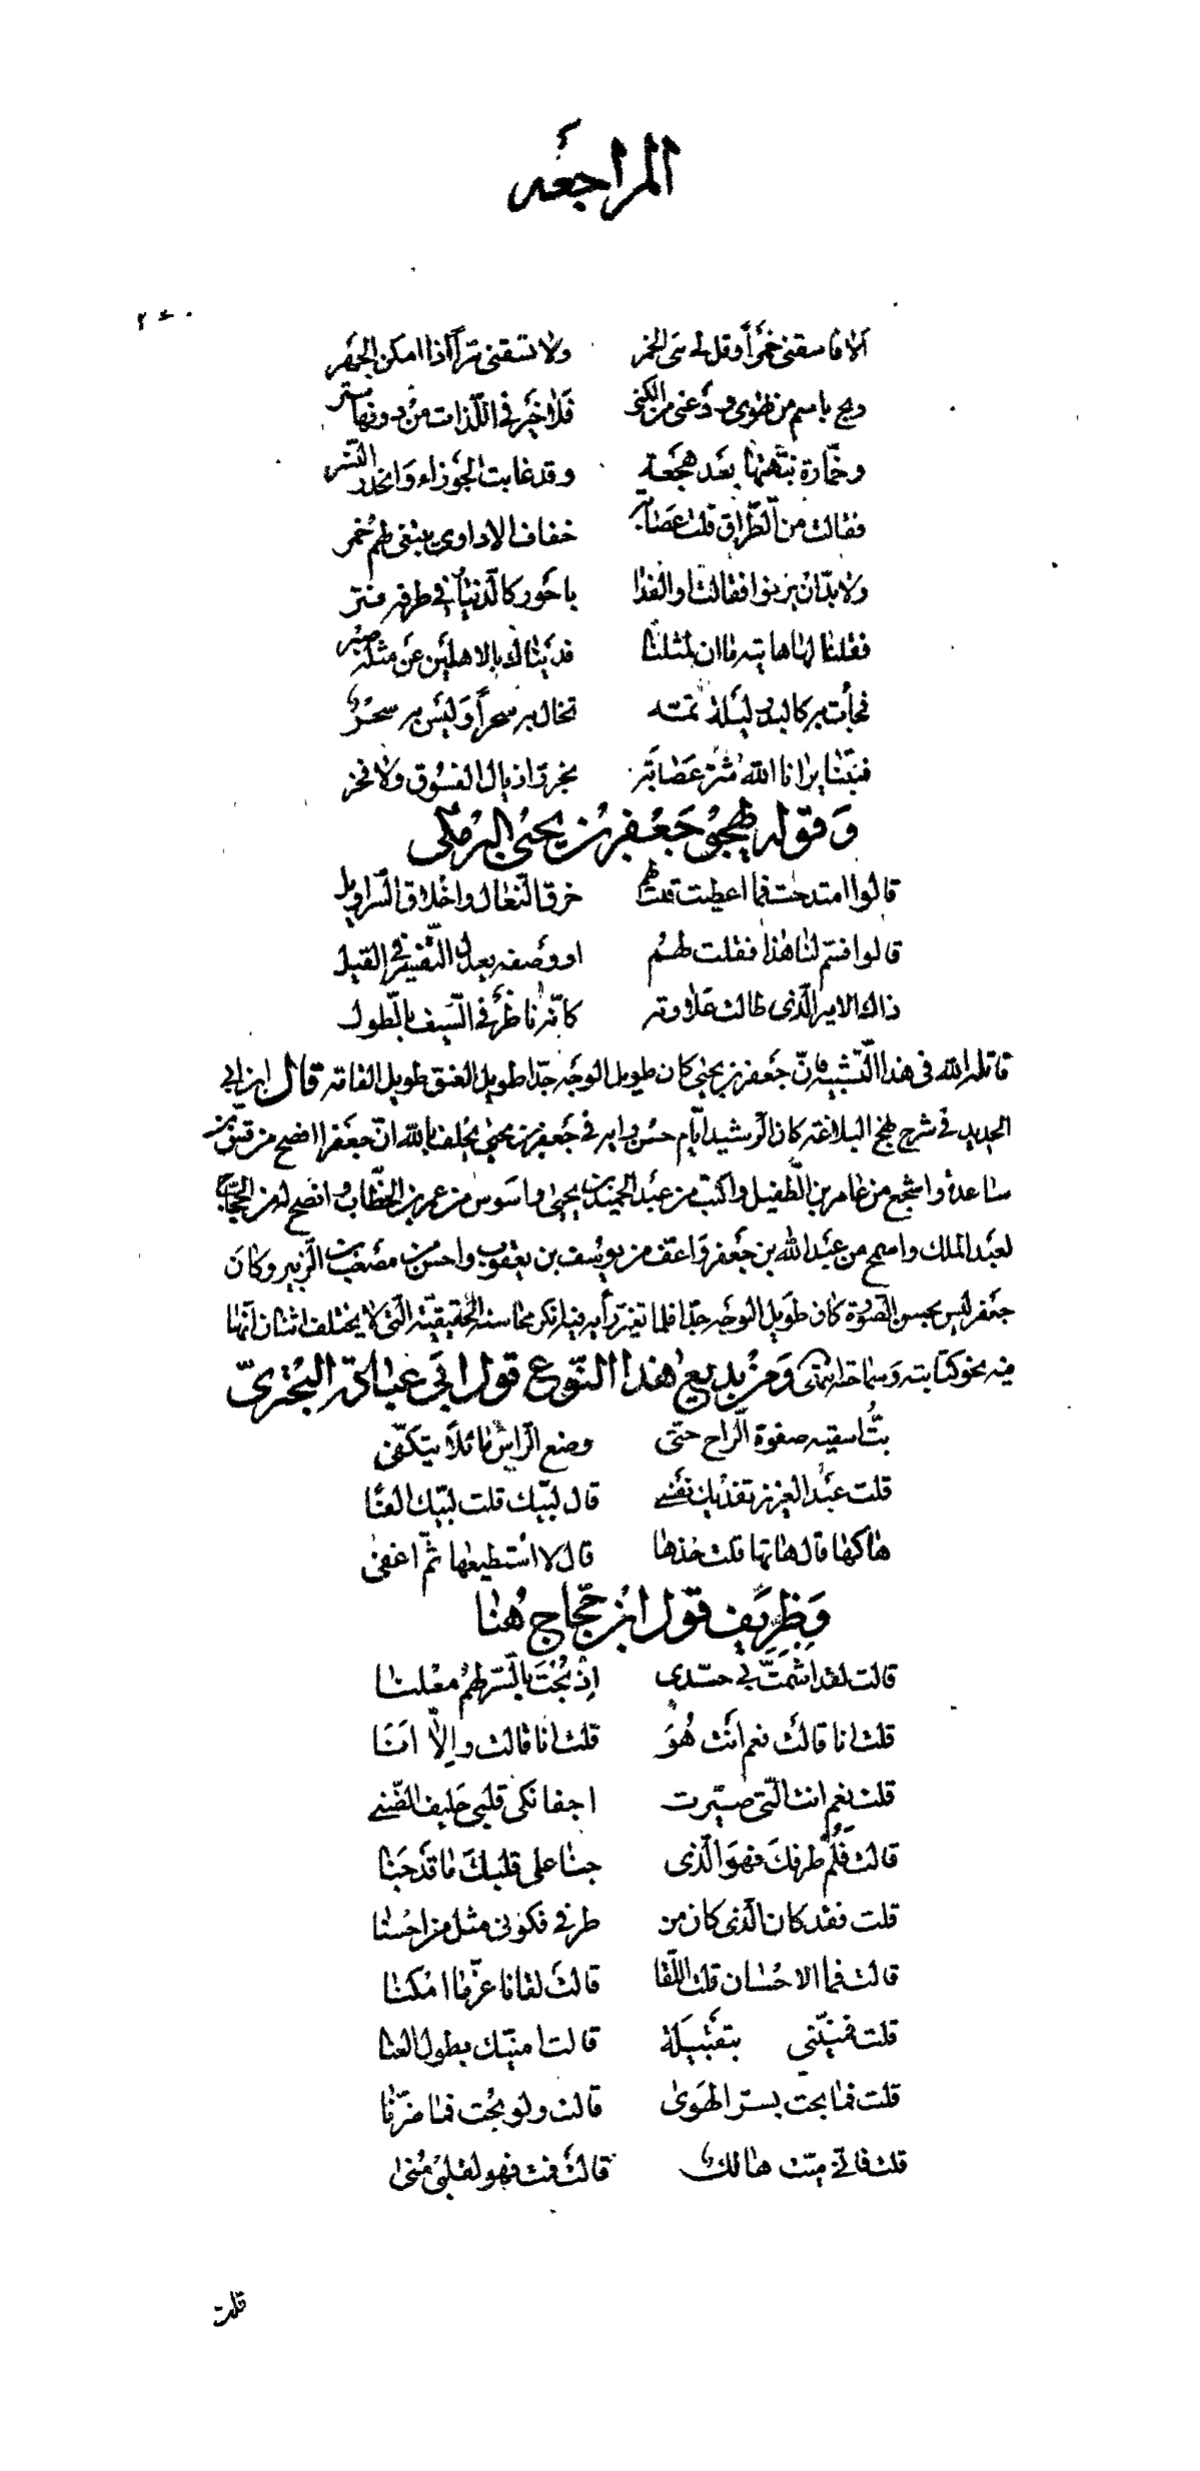 المراجعه
٢٤٠
الا فاسقني خمراً وقل لي هي الخمر ولا تسقني سراً اذا امكن الجهر
وبح باسم من تهوى ودعني من الكنى فلا خير في اللذات من دونها ستر
وخمارة نبهتها بعد هجعة وقد غابت الجوزاء وانحدر النسر
فقالت من الطراق قلت عصابة خفاف الاداوى يبتغى لهم خمر
ولا بد ان يزنوا فقالت او الفدا باحور كالدينار في طرفه فتر
فقلنا لها هاتيه ما ان لمثلنا فديناك بالاهلين عن مثله صبر
فجأت به كالبدر ليلة تمه تخال به سحراً وليس به سحر
فبتنا يرانا الله شر عصابة نجرر اذيال الفسوق ولا فخر
وقوله يهجو جعفر بن يحيى البرمكى
قالوا امتدحت فما اعطيت قلت لهم خرق النعال واخلاق السراويل
قالوا فسم لنا هذا فقلت لهم او وصفه يعدل التفسير في القيل
ذاك الامير الذى طالت علاوته كانه ناظر في السيف بالطول
قاتله الله فى هذا التشبيه فان جعفر بن يحيى كان طويل الوجه جدا طويل العنق طويل القامة قال ابن ابي
الحديد في شرح نهج البلاغة كان الرشيد ايام حسن رايه في جعفر بن يحيى يحلف بالله ان جعفرا افصح من قس بن
ساعدة واشجع من عامر بن الطفيل واكتب من عبد الحميد بن يحيى واسوس من عمر بن الخطاب وانصح له من الحجاج
لعبد الملك واسمح من عبد الله بن جعفر واعف من يوسف بن يعقوب واحسن من مصعب بن الزبير وكان
جعفر ليس بحسن الصورة كان طويل الوجه جدا فلما تغير رأيه فيه انكر محاسنه الحقيقية التي لا يختلف اثنان انها
فيه نحو كتابته وسماحته انتهى ومن بديع هذا النوع قول ابي عبادة البحتري
بت اسقيه صفوة الراح حتى وضع الراس مائلا يتكفى
قلت عبد العزيز تفديك نفسي قال لبيك قلت لبيك الفا
هاكها قال هاتها قلت خذها قال لا استطيعها ثم اغفى
وظريف قول ابن حجاج هنا
قالت لقد اشمت بي حسدي اذ بحت بالسر لهم معلنا
قلت انا قالت نعم انت هو قلت انا قالت والا انا
قلت نعم انت التي صيرت اجفانكى قلبي حليف الضنى
قالت فلم طرفك فهو الذى جنا على قلبك ما قد جنا
قلت فقد كان الذى كان من طرفي فكونى مثل من احسنا
قالت فما الاحسان قلت اللقا قالت لقانا عز ما امكنا
قلت فمنيني بتقبيلة قالت امنيك بطول العنا
قلت فما بحت بسر الهوى قالت ولو بحت فما ضرنا
قلت فاني ميت هالك قالت فمت فهو لقلبي منى
قلت